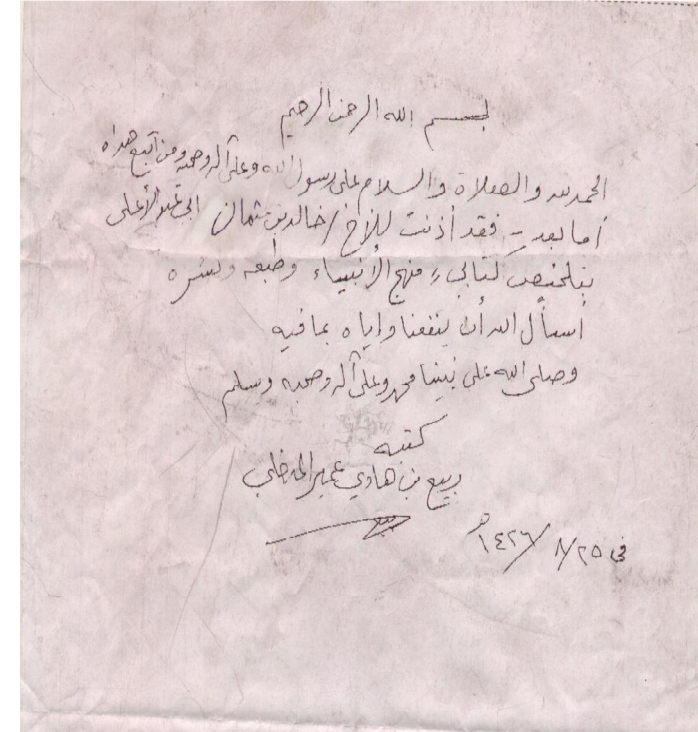 بسم الله الرحمن الرحيم
الحمد لله والصلاة والسلام على رسول الله وعلى آله وصحبه ومن اتبع هداه
أما بعد - فقد أذنت للأخ / خالد بن عثمان أبي عبد الأعلى
بتلخيص كتابي منهج الأنبياء وطبعه ونشره
أسأل الله أن ينفعنا وإياه بما فيه
وصلى الله على نبينا محمد وعلى آله وصحبه وسلم
كتبه
ربيع بن هادي عمير المدخلي
في ٢٥/٨/١٤٢٦هـ